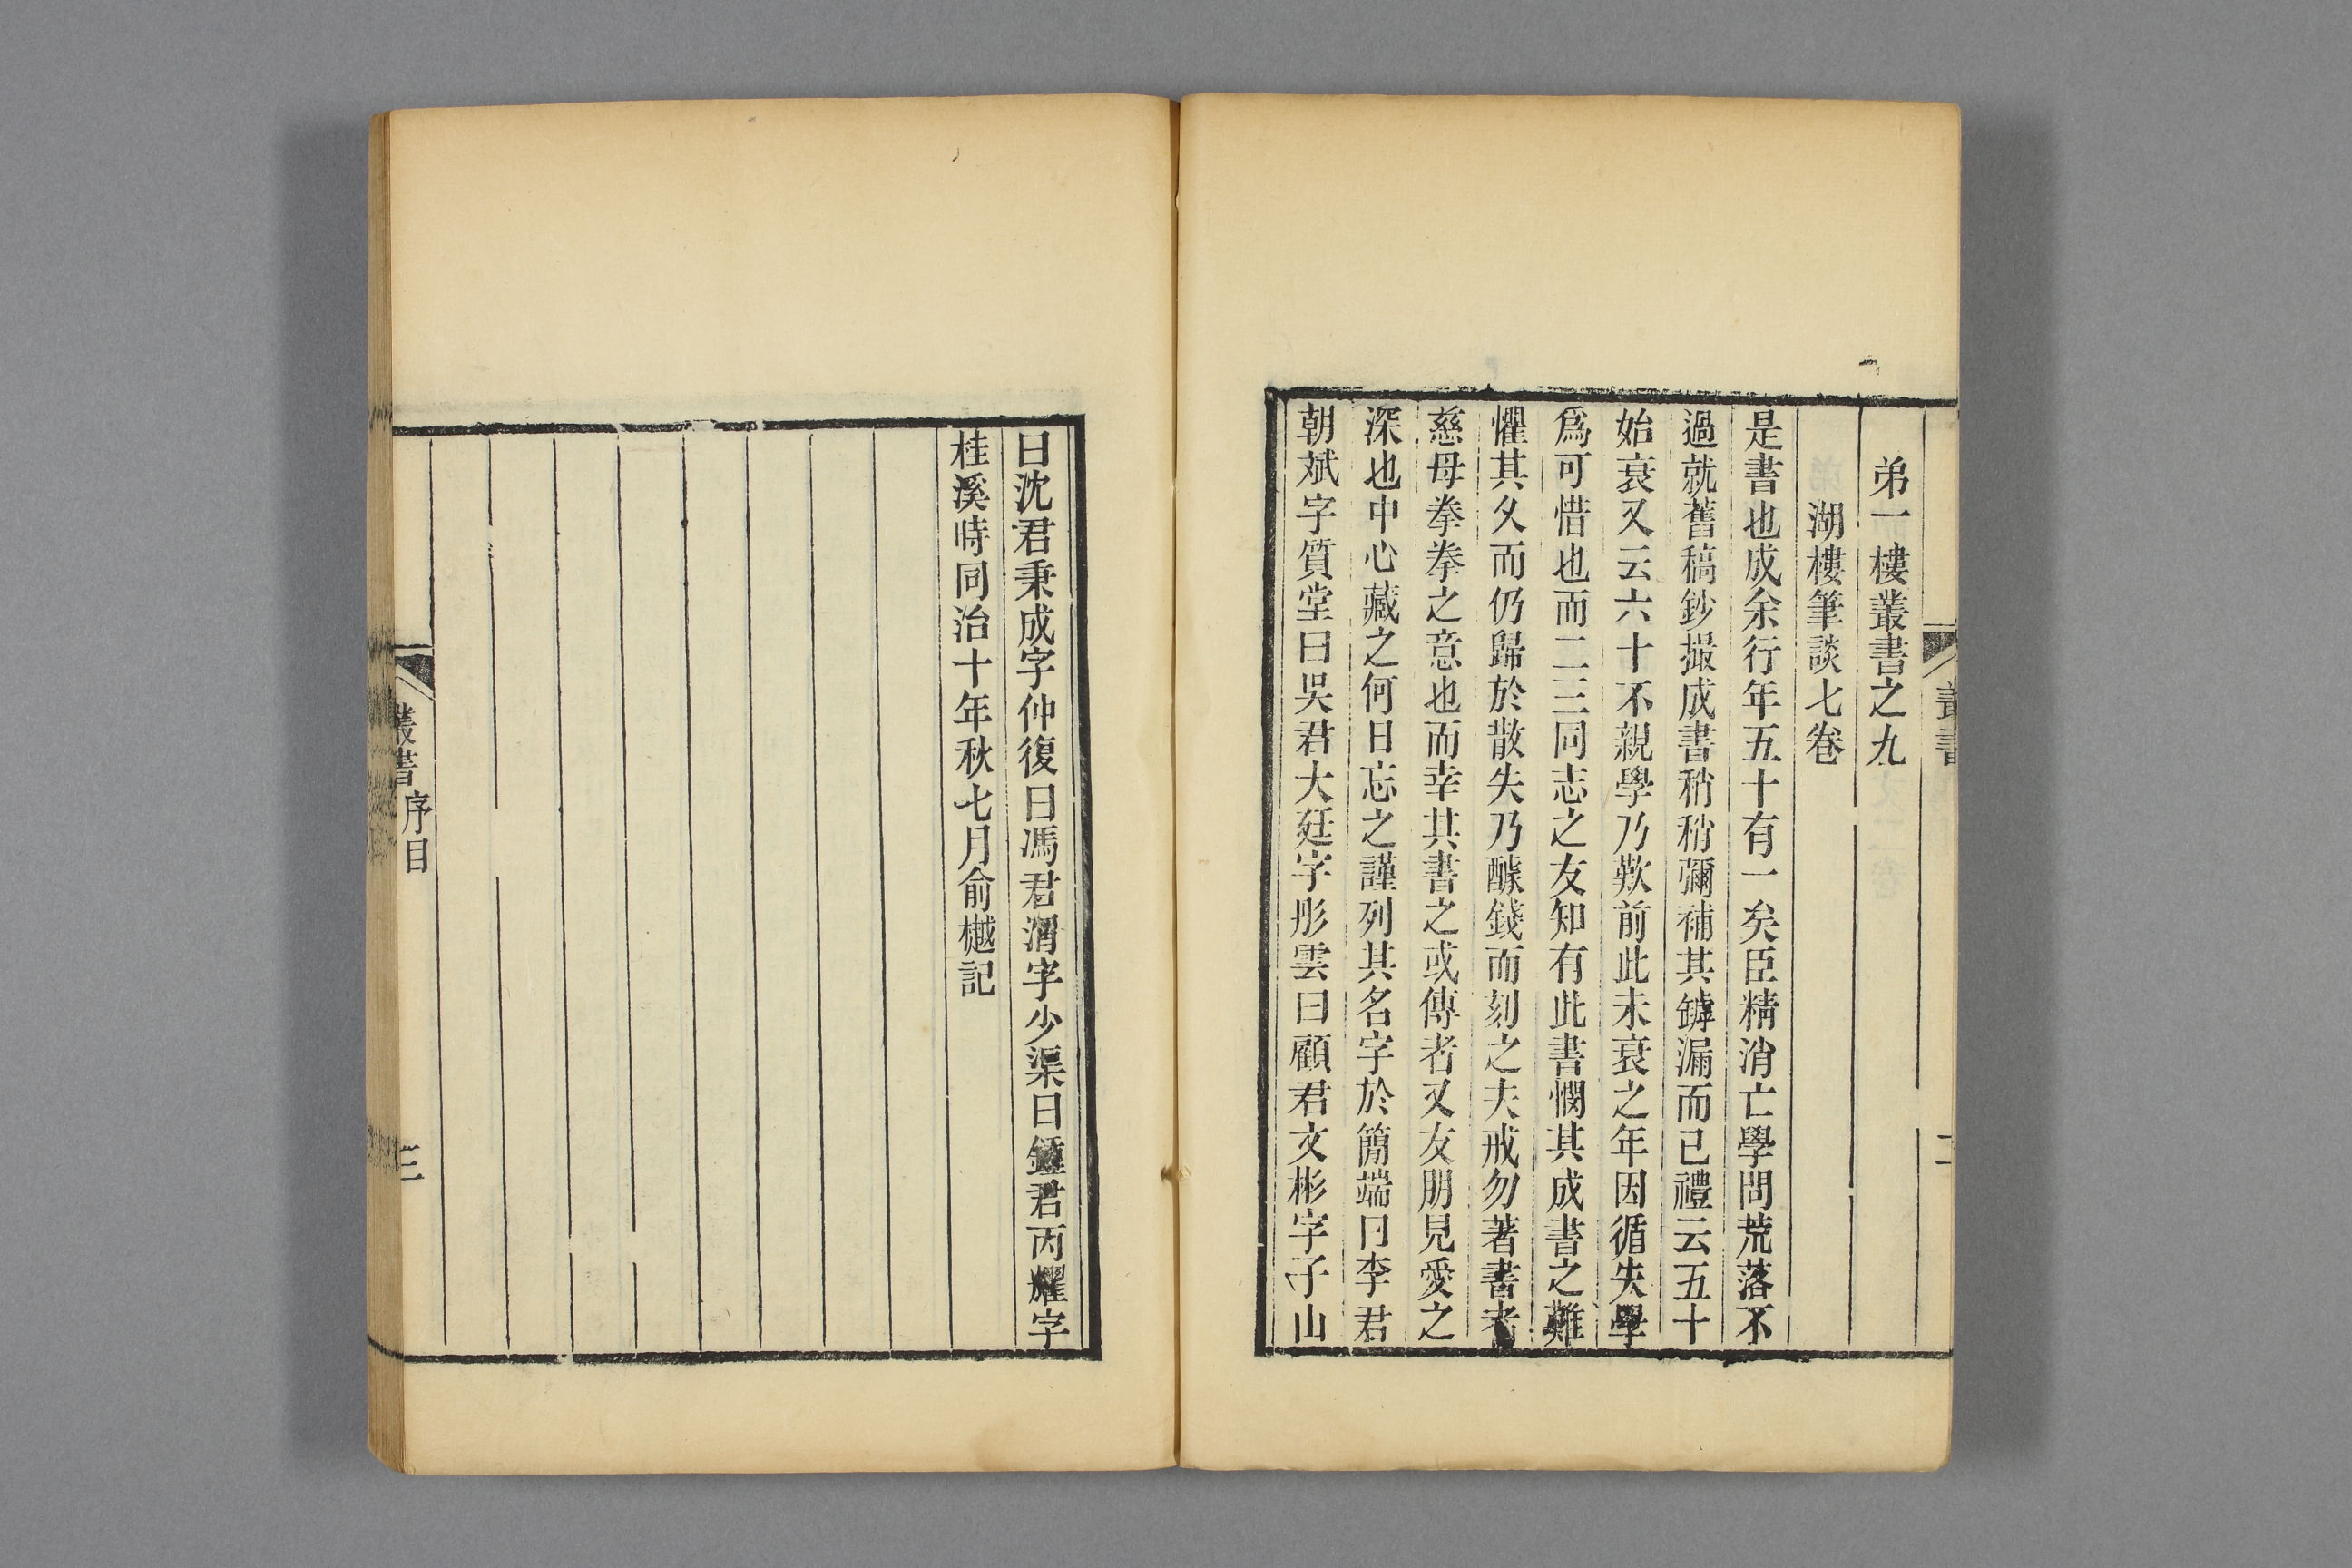 弟一樓叢書之九
湖樓筆談七卷
是書也成余行年五十有一矣臣精消亡學問荒落不
過就舊稿鈔撮成書稍稍彌補其罅漏而已禮云五十
始衰又云六十不親學乃歎前此未衰之年因循失學
爲可惜也而二三同志之友知有此書憫其成書之難
懼其久而仍歸於散失乃醵錢而刻之夫戒勿著書者
慈母拳拳之意也而幸其書之或傳者又友朋見愛之
深也中心藏之何日忘之謹列其名字於簡端曰李君
朝斌字質堂曰吳君大廷字彤雲曰顧君文彬字子山
曰沈君秉成字仲復曰馮君渭字少渠曰鍾君丙耀字
桂溪時同治十年秋七月俞樾記
叢書序目
三